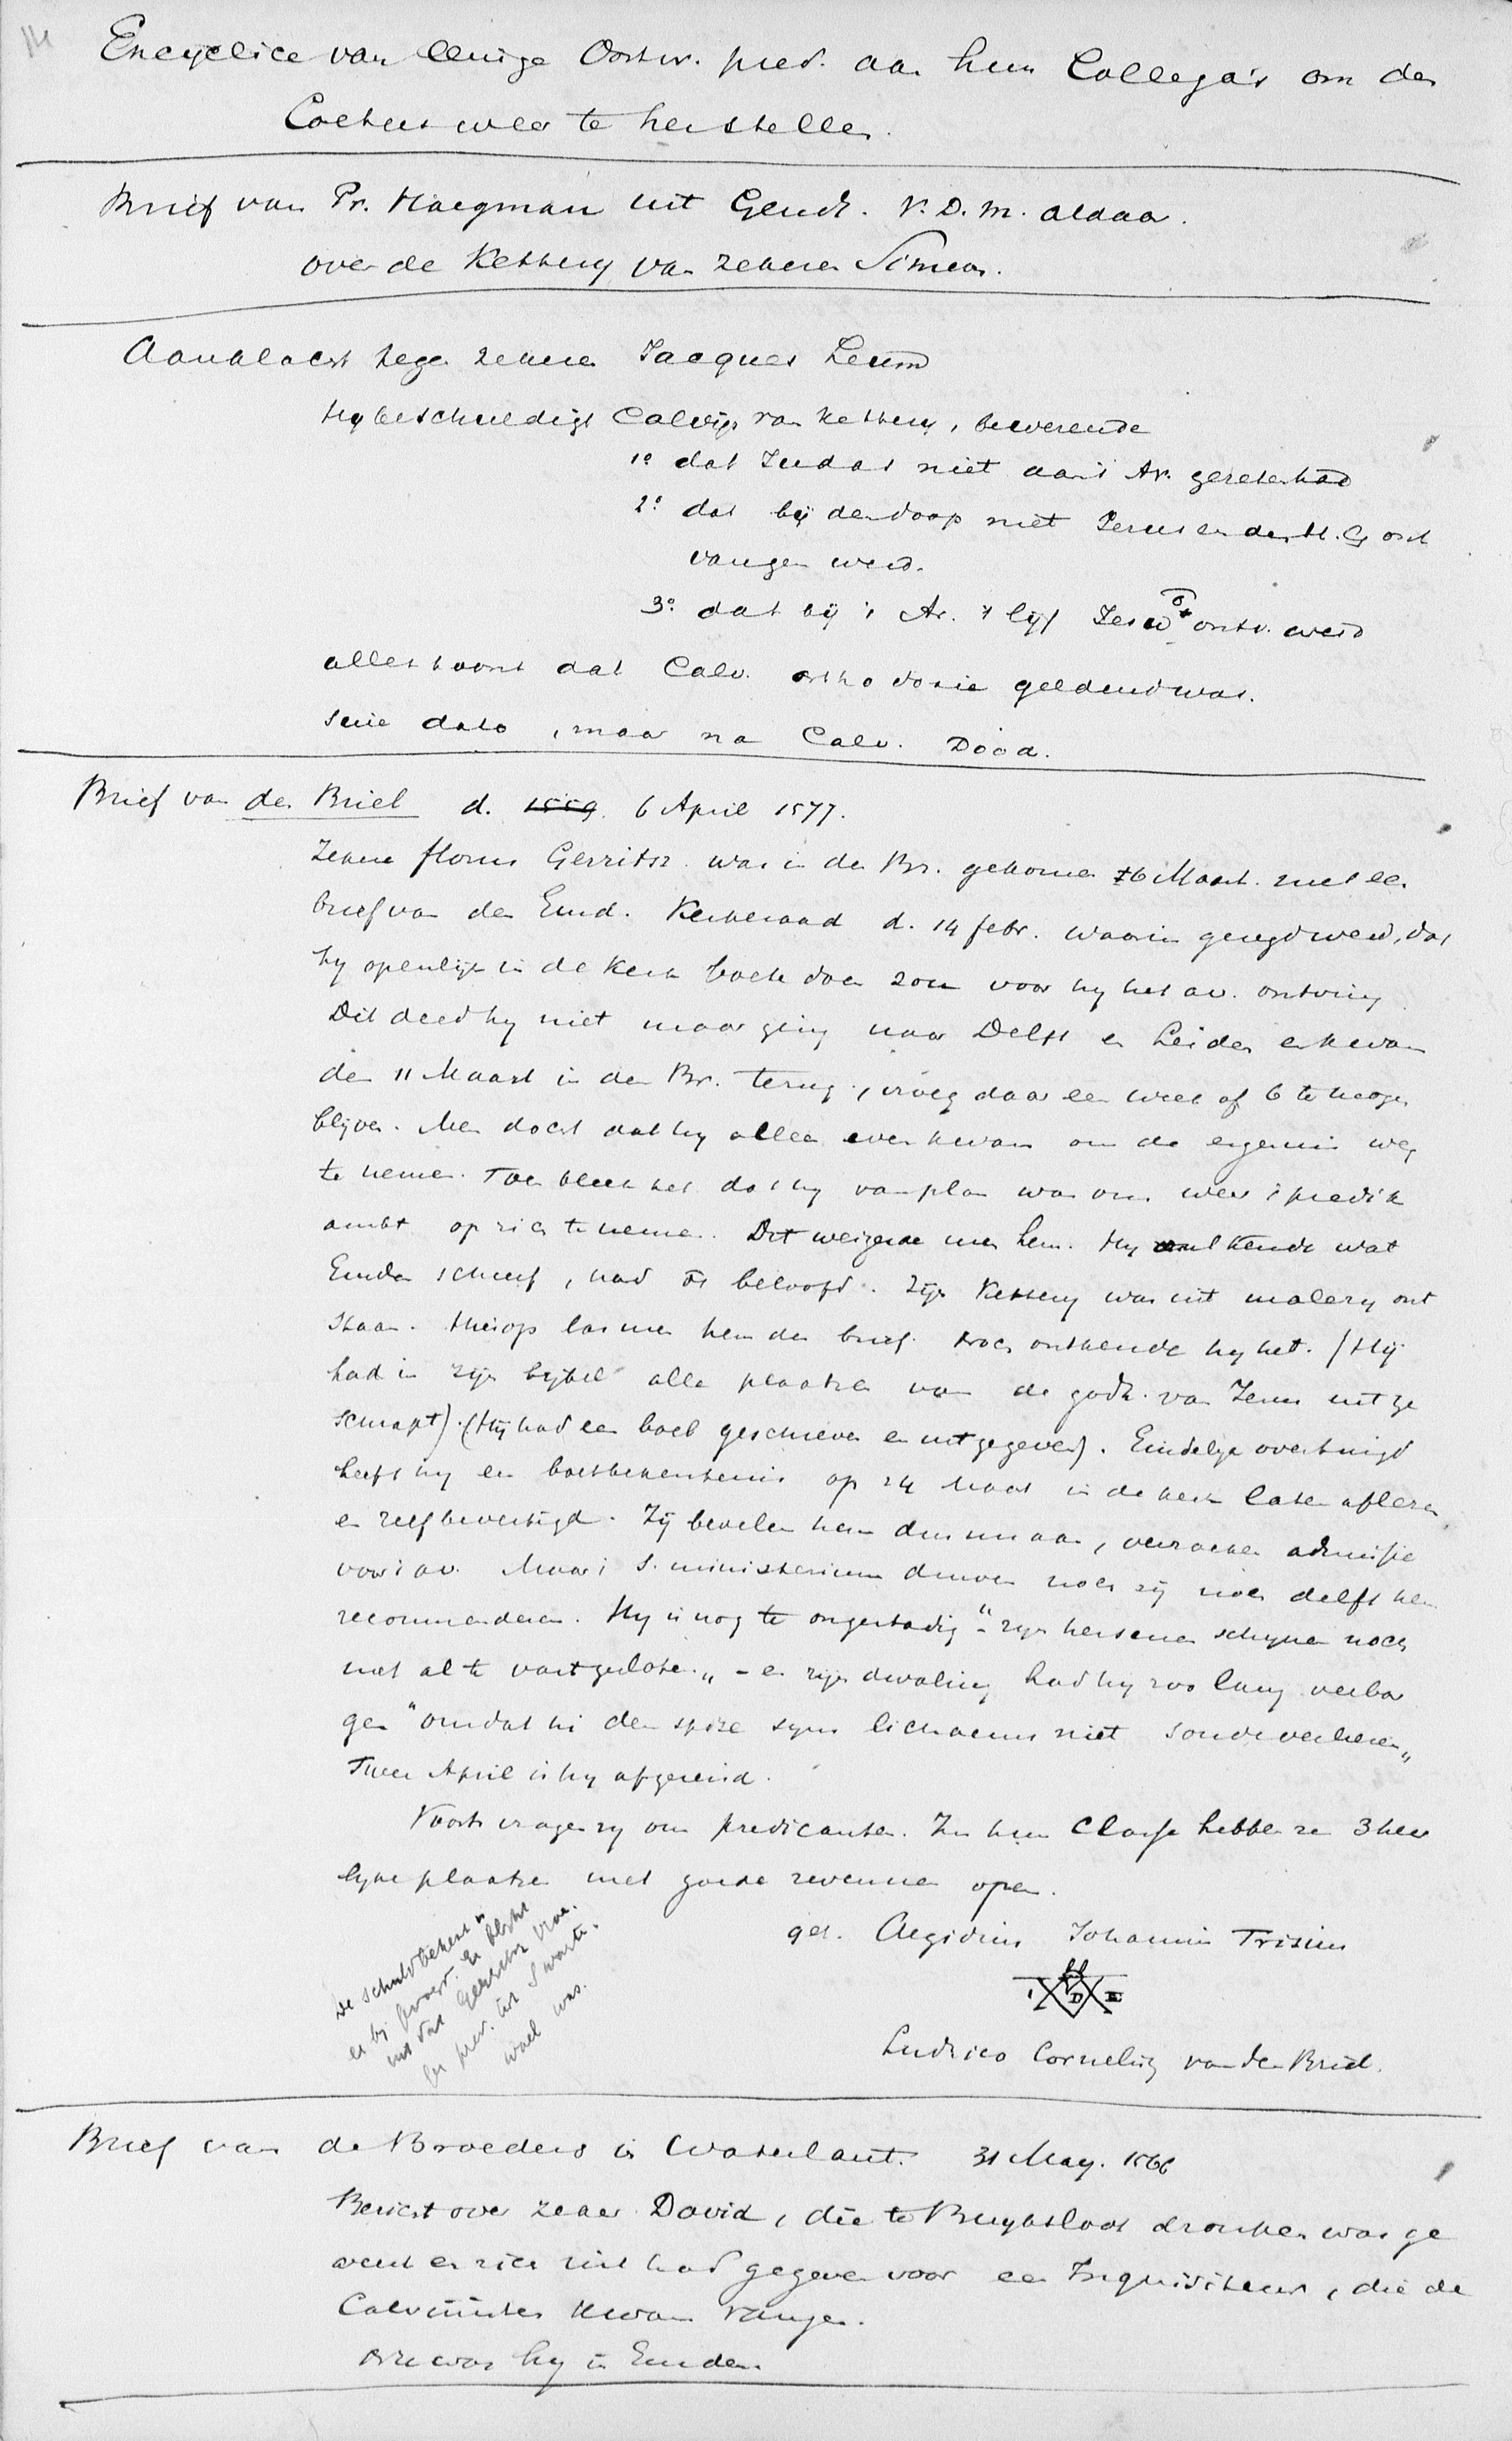 Encyclice van eenige Oostvr. pred. aan hun Collega's om den
Coetus weer te herstellen.
Brief van Pr. Haegman uit Gendt. V. D. M. aldaar.
over de Kettery van zekeren Simeon.
Aanklacht tegen zekeren Jacques
Hy beschuldigt Calvijn van kettery, bewerende
1º dat Judas niet aan 't Av. gezeten had
2º dat bij den doop niet Jezus en den H. G. ont
vangen werd.
3º dat bij 't Av. 't lijf Jezu ontv. werd
alles toont dat Calv. orthodoxie geldend was.
sine dato, maar na Calv. Dood.
Brief van den Briel d. 1559. 6 April 1577.
Zekere floris Gerritsz. was in den Br. gekomen 6 Maart. met een
brief van den Emd. Kerkeraad d. 14 febr. waarin gezegd werd, dat
hy openlijk in de kerk boete doen zou voor hy het av. ontving
Dit deed hy niet maar ging naar Delft en Leiden en kwam
den 11 Maart in den Br. terug, vroeg daar een week of 6 te mogen
blijven. Men dacht dat hy alleen even kwam om de ergernis weg
te nemen. Toen bleek het dat hy van plan was om weer 't predik
ambt op zich te nemen. Dit weigerde men hem. Hy kende wat
Emden schreef, had 't beloofd. Zijn Kettery was uit malery ont
staan. Hierop las men hem den brief. Toch ontkende hy het. (Hij
had in zijn bijbel alle plaatsen van de godh. van Jezus uitge
schrapt). (Hij had een boek geschreven en uitgegeven). Eindelijk overtuigd
heeft hy een boetbekentenis op 24 Maart in de kerk laten aflezen
en zelf bevestigd. Zij bevelen hem dus nu aan, verzoeken admissie
voor 't av. Maar 't S. ministerium durven noch zij noch delft hem
recommanderen. Hy is nog te ongestadig "zijn hersenen schynen noch
niet al te vast gesloten" - en zijn dwaling had hy zoo lang verbor
gen "omdat hi den spise syns lichaems niet soude verliesen"
Twee April is hy afgereisd.
Voorts vragen zy om predicanten. In hun Classe hebben ze 3 heer
lyke plaatsen met goede revenuen open.
get. Aegidius Johannis Frisius
I D E
Ludvico Cornelisz van den Briel.
De schuldbekent"
er bij
uit dat Gerritsz
pred. tot Swarte
wael was.
Brief van de Broeders in Waterlant. 31 May. 1566
Bericht over zeker David, die te Buyksloot dronken was ge
weest en zich uit had gegeven voor een Inquisiteur, die de
Calvinisten kwam vangen.
was hy in Emden.